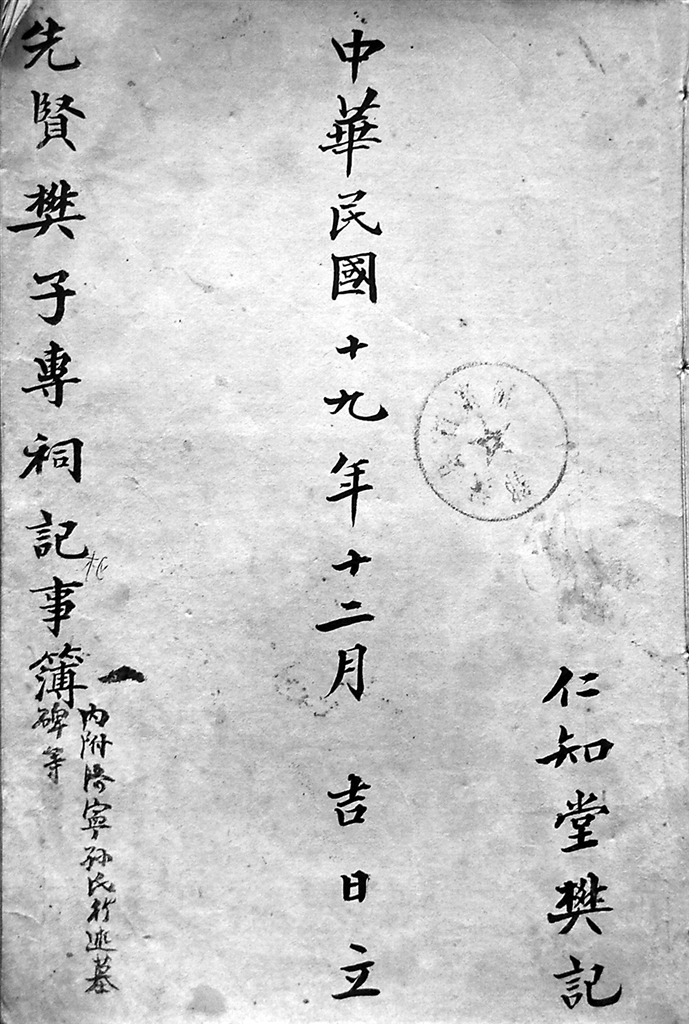 仁知堂樊記
中華民國十九年十二月 吉日立
先賢樊子專祠記事簿
內附濟寧孫氏行述墓
碑等